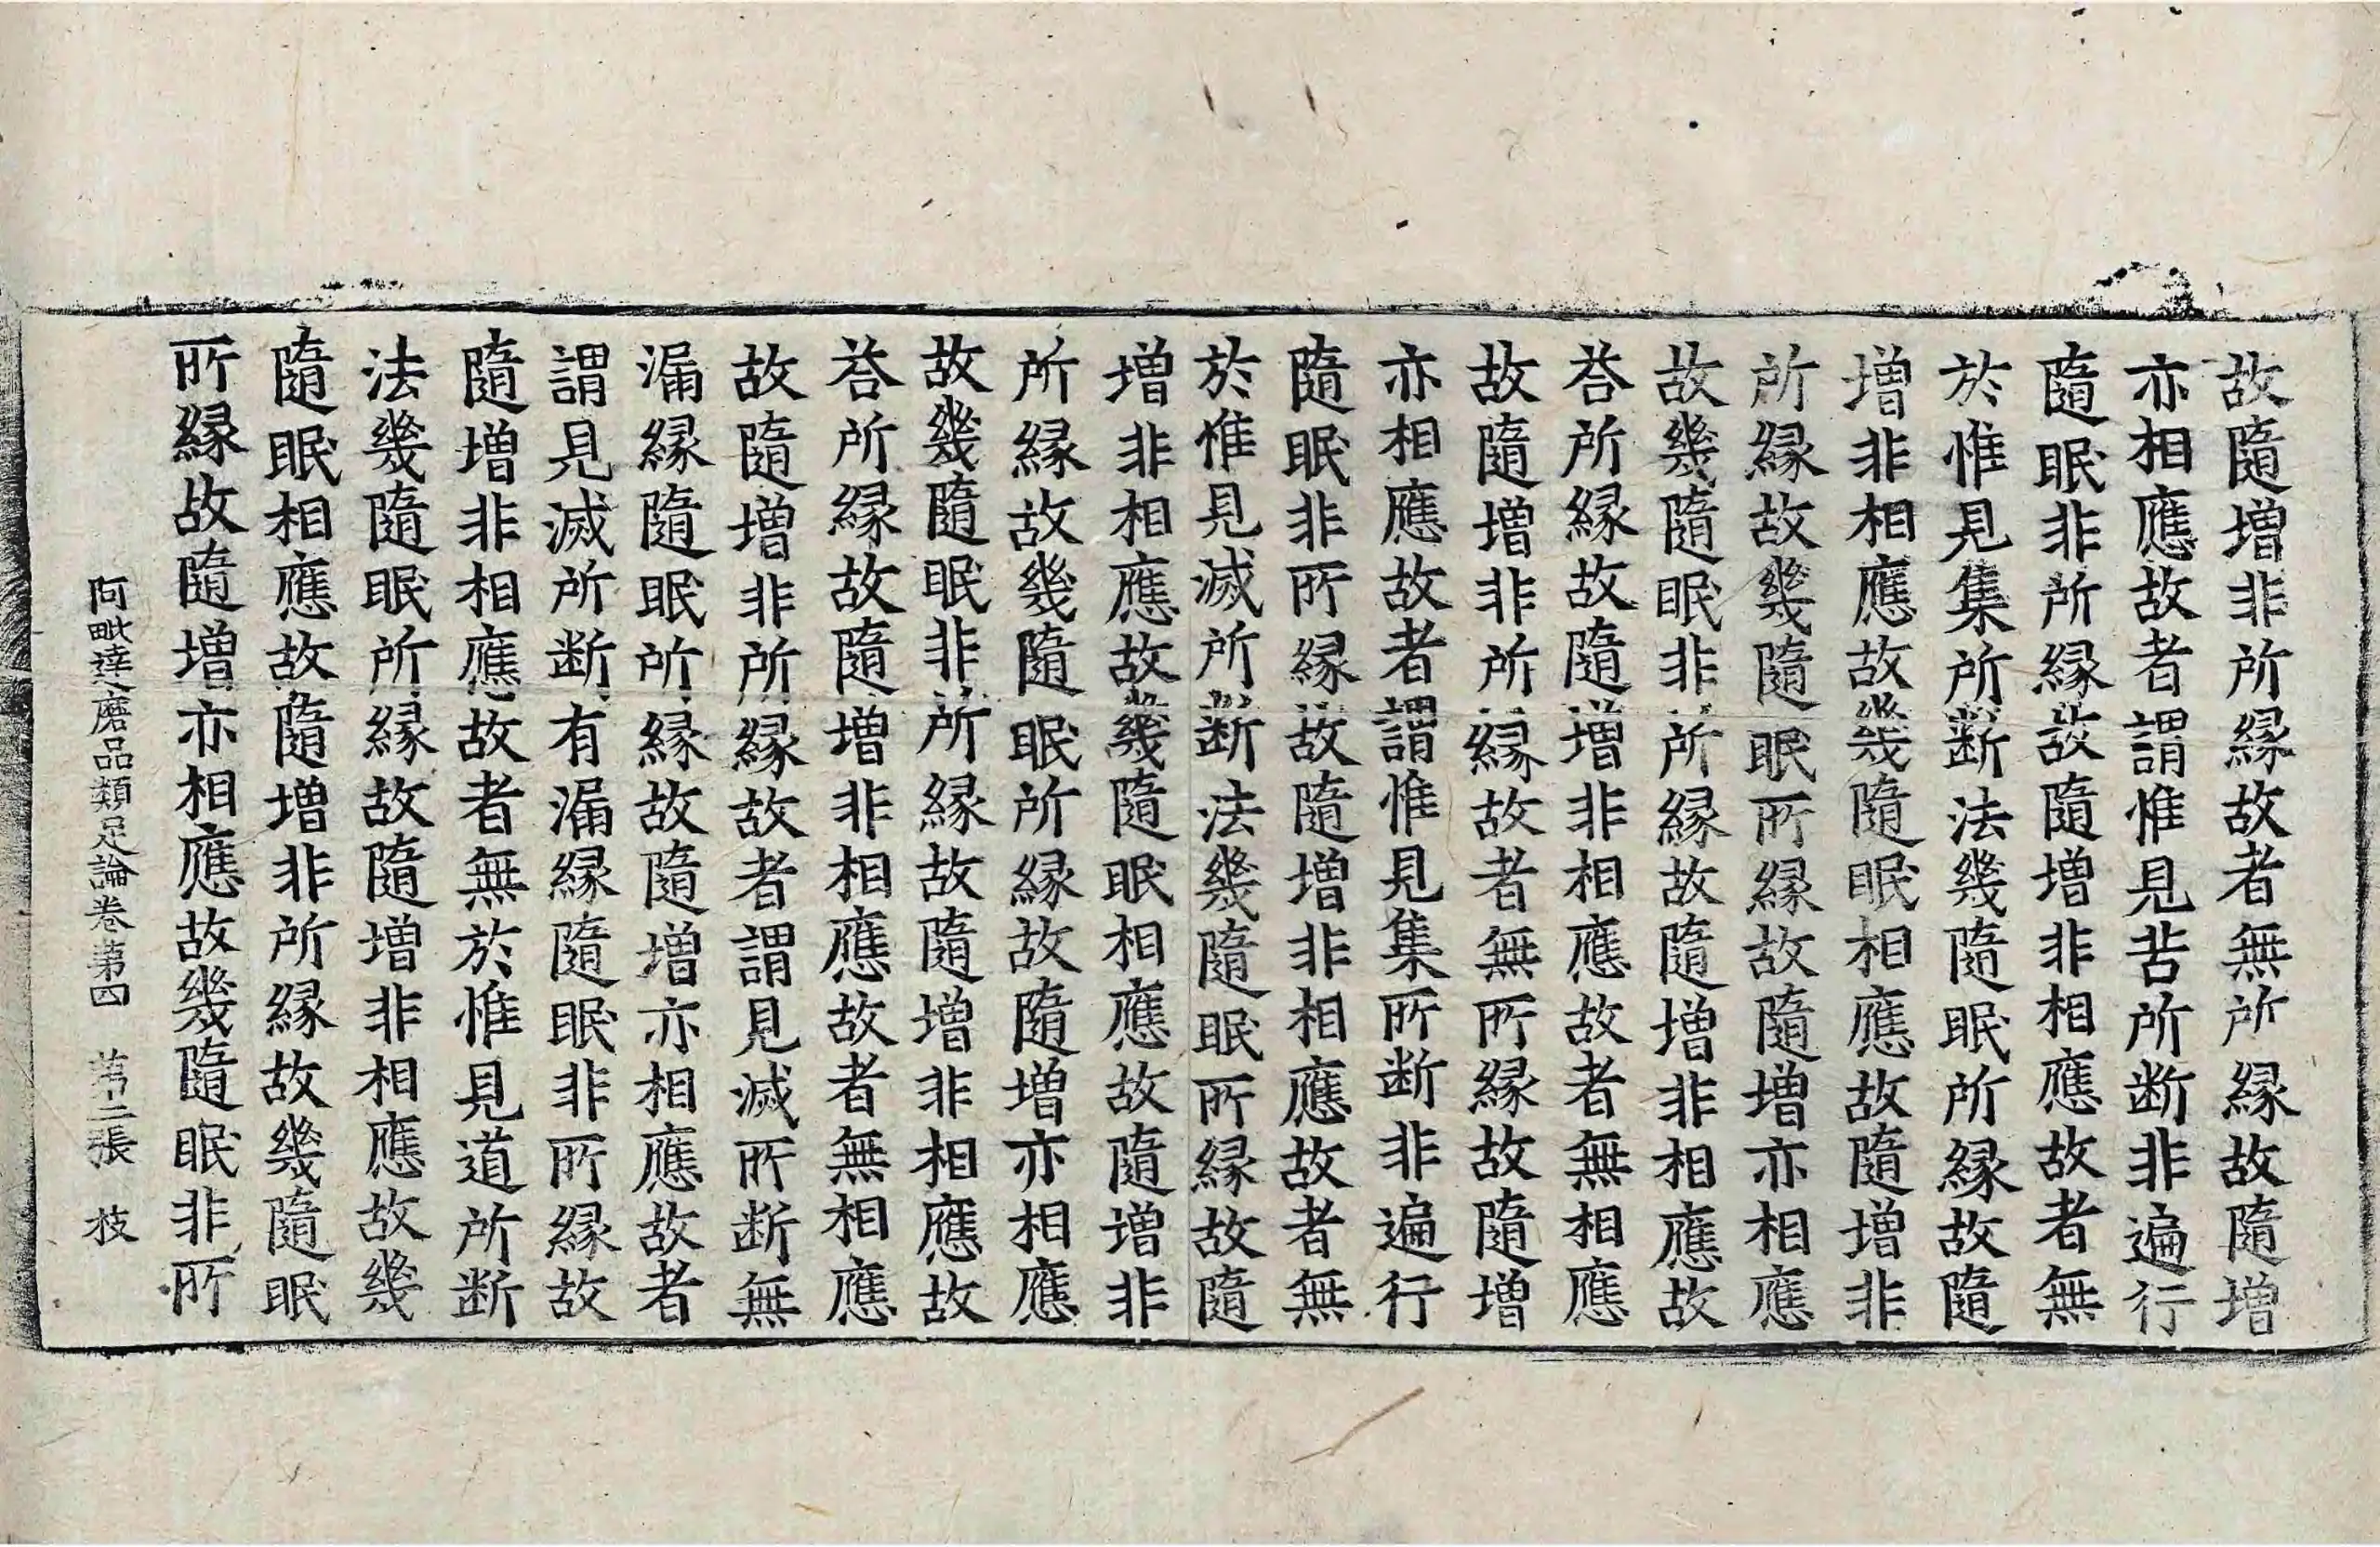 故隨增非所縁故者無所縁故隨增
亦相應故者謂惟見苦所断非遍行
隨眠非所縁故隨增非相應故者無
於惟見集所断法幾隨眠所縁故隨
增非相應故幾隨眠相應故隨增非
所縁故幾隨眠所縁故隨增亦相應
故幾隨眠非所縁故隨增非相應故
荅所縁故隨增非相應故者無相應
故隨增非所縁故者無所縁故隨增
亦相應故者謂惟見集所断非遍行
隨眠非所縁故隨增非相應故者無
於惟見滅所断法幾隨眠所縁故隨
增非相應故幾隨眠相應故隨增非
所縁故幾隨眠所縁故隨增亦相應
故幾隨眠非所縁故隨增非相應故
荅所縁故隨增非相應故者無相應
故隨增非所縁故者謂見滅所断無
漏縁隨眠所縁故隨增亦相應故者
謂見滅所断有漏縁隨眠非所縁故
隨增非相應故者無於惟見道所断
法幾隨眠所縁故隨增非相應故幾
隨眠相應故隨增非所縁故幾隨眠
所縁故隨增亦相應故幾隨眠非所
阿毗達磨品類足論卷第四 第二張 枝